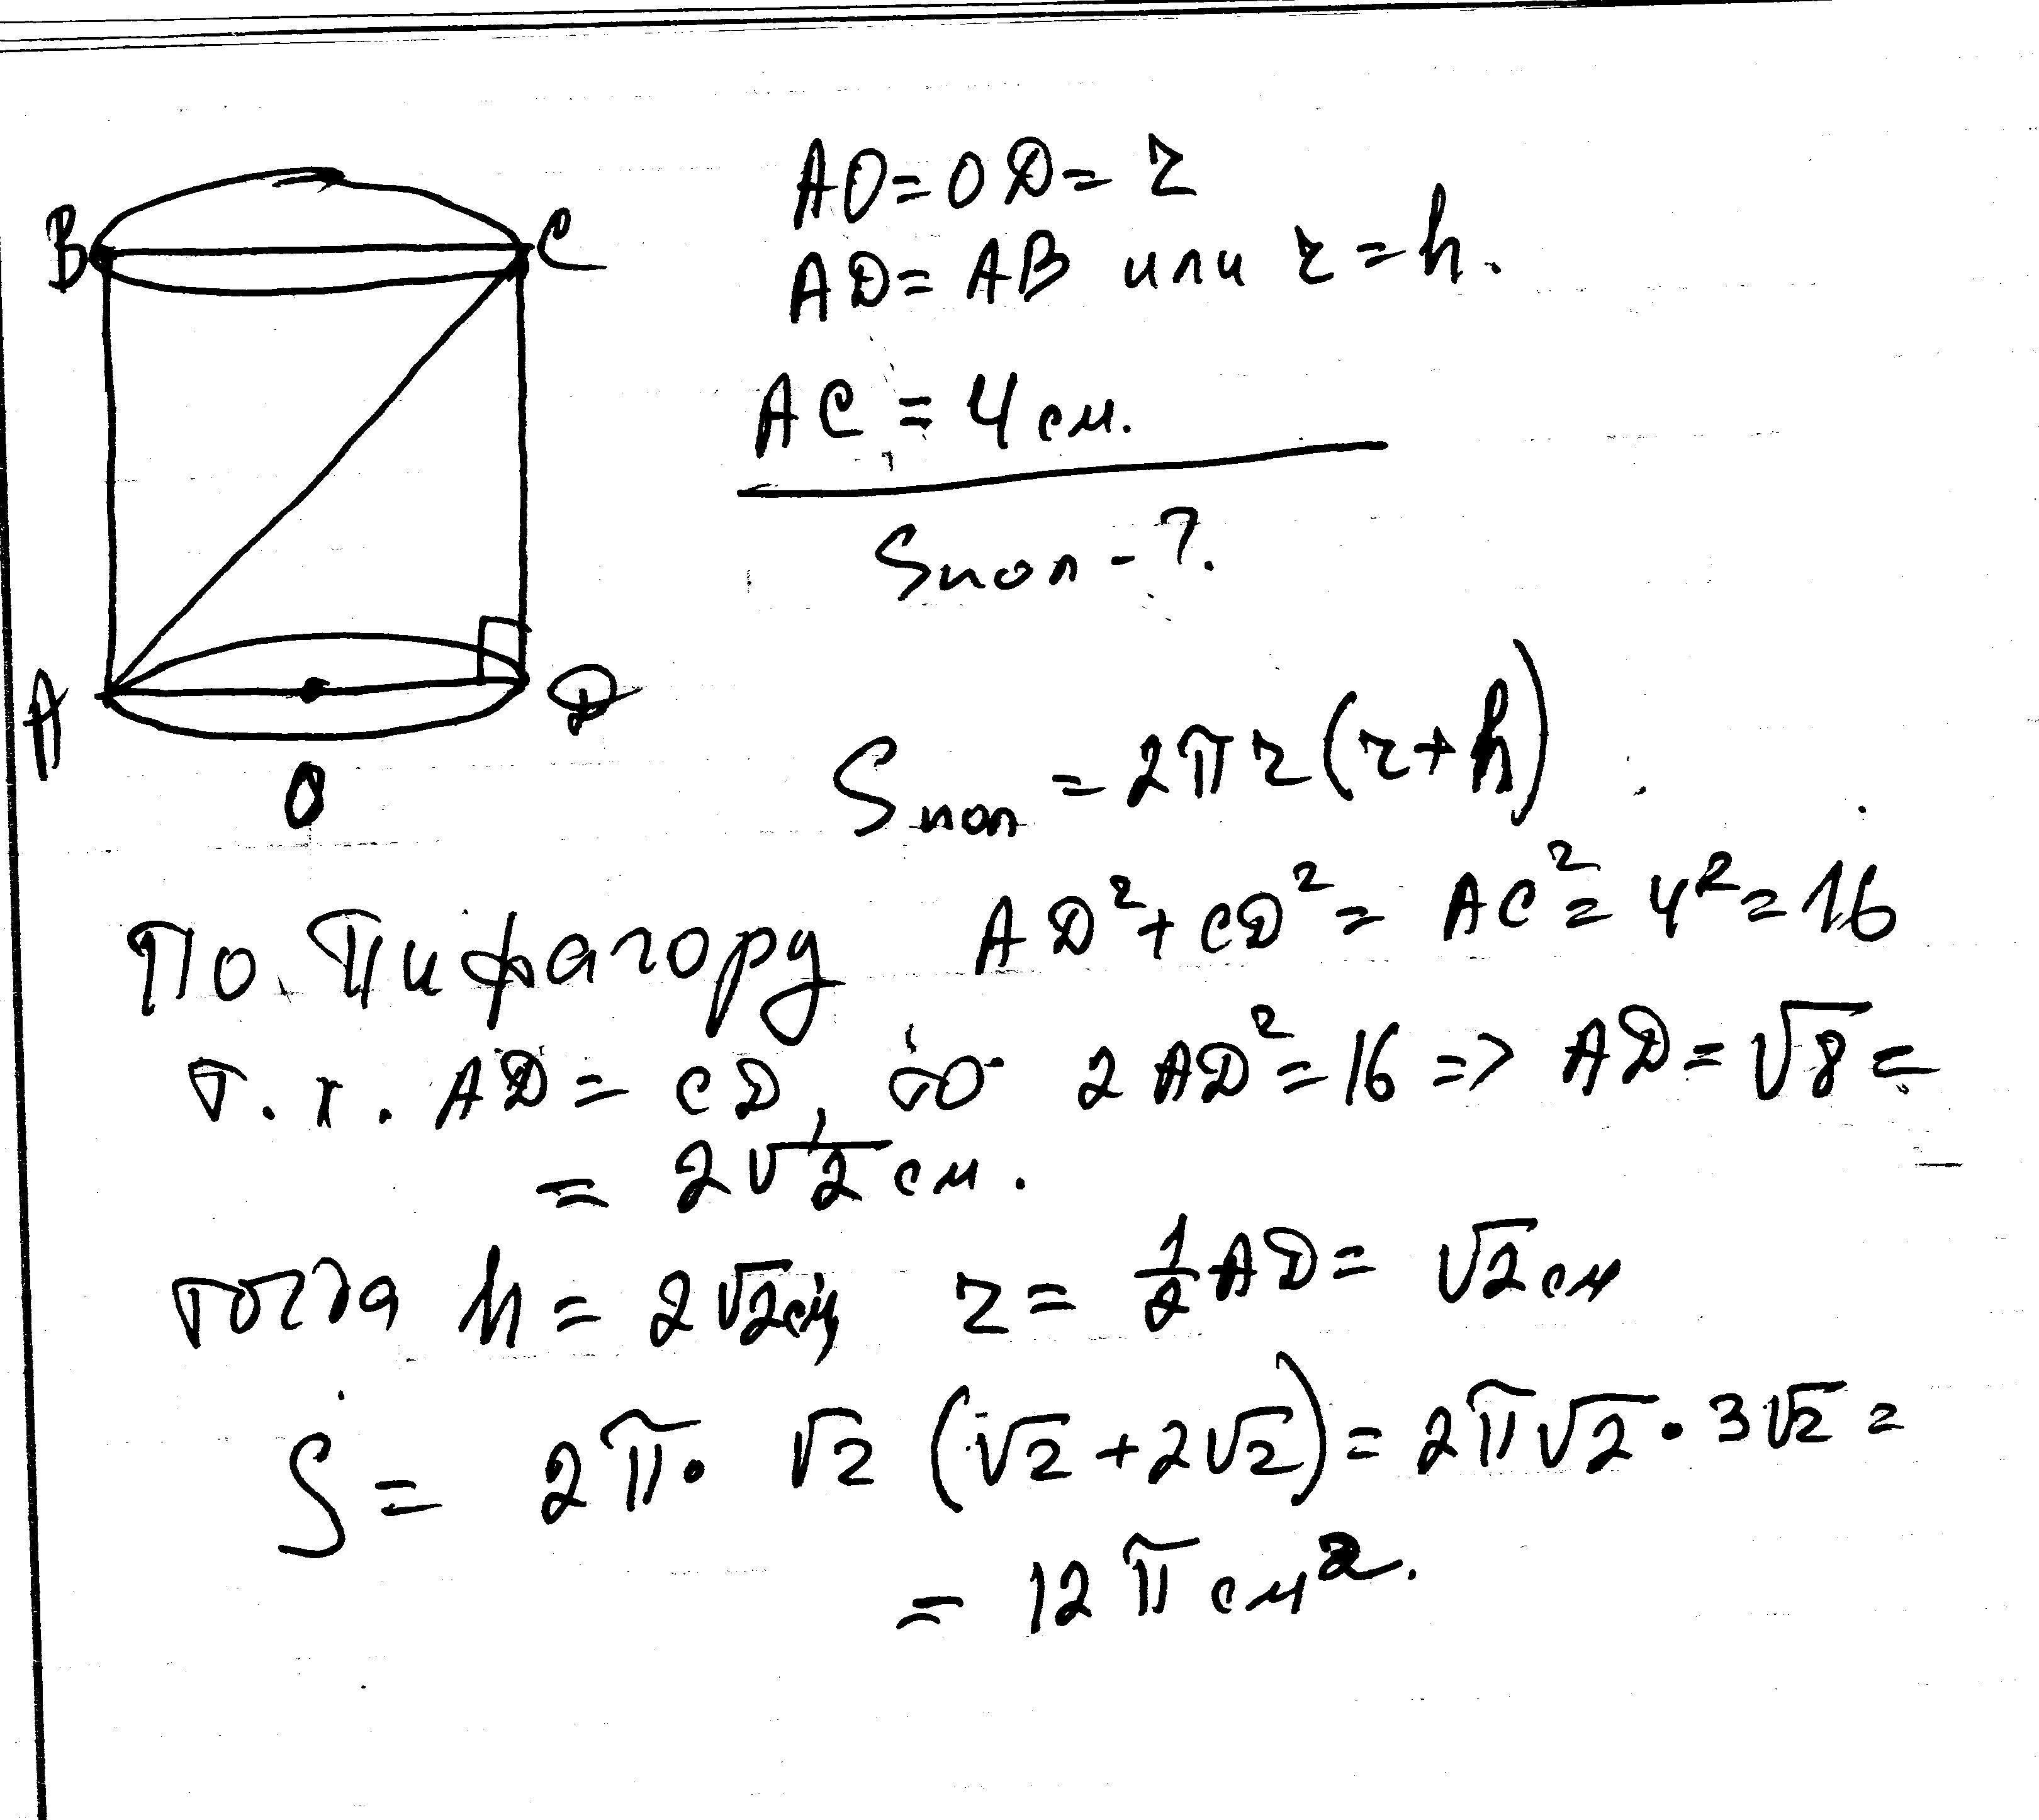 B C
A D
O
AO = OD = r
AD = AB или r = h.
AC = 4 см.
Sпол - ?.
Sпол = 2πr(r+h)
По Пифагору AD² + CD² = AC² = 4² = 16
т.к. AD = CD, то 2AD² = 16 => AD = √8 =
= 2√2 см.
тогда h = 2√2 см, r = 1/2 AD = √2 см
S = 2π · √2 (√2 + 2√2) = 2π√2 · 3√2 =
= 12π см².